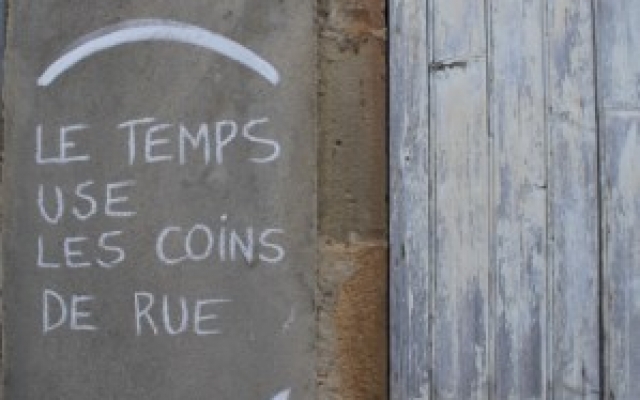 LE TEMPS
USE
LES COiNS
DE RUE